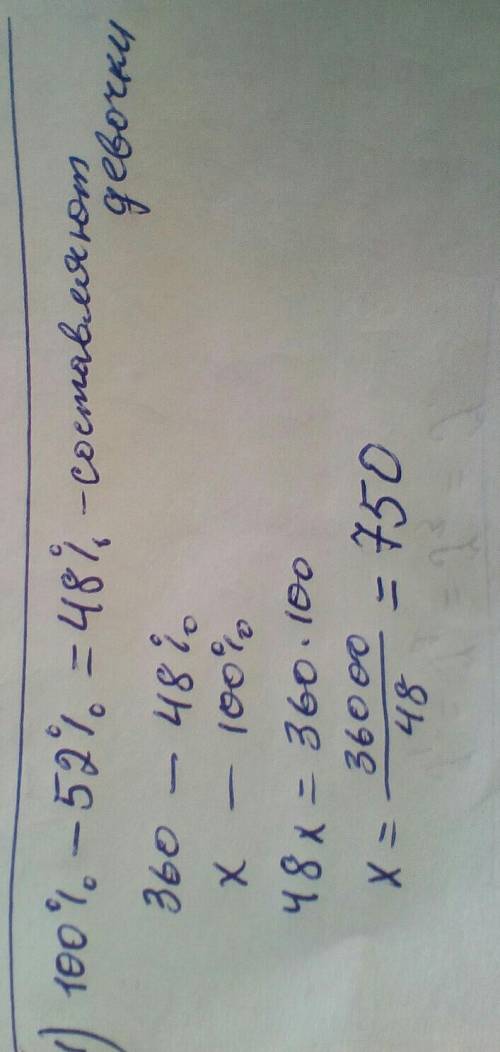 1) 100% - 52% = 48% - составляют
девочки
360 - 48%
x - 100%
48x = 360 · 100
x = 36000/48 = 750